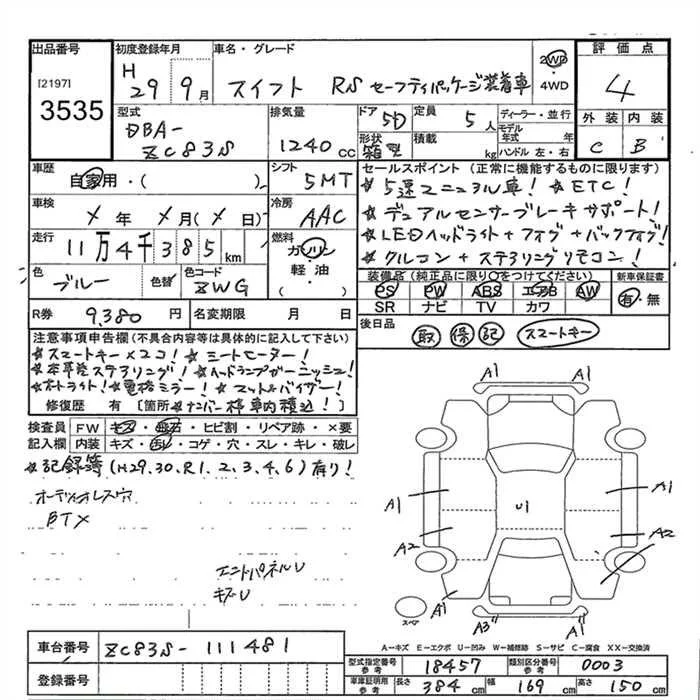 出品番号 初度登録年月 車名・グレード 評価点
[2197] H 29年 9月 スイフト RS セーフティパッケージ装着車 2WD・4WD 4
3535
型式 排気量 ドア 5D 定員 5人 ディーラー・並行 外装 内装
DBA-ZC83S 1240cc 形状 箱型 積載 kg モデル年式 年 C B
ハンドル 左・右
車歴 自家用・( ) シフト 5MT セールスポイント (正常に機能するものに限ります)
☆5速マニュアル車! ☆ETC!
車検 メ年 メ月(メ日) 冷房 AAC ☆デュアルセンサーブレーキサポート!
走行 11万4千385km 燃料 ガソリン 軽油・( ) ☆LEDヘッドライト+フォグ+バックフォグ!
☆クルコン+ステアリングリモコン!
色 ブルー 色替 色コード ZWG 装備品 (純正品に限り○をつけてください) 新車保証書
PS PW ABS エアB AW 有・無
SR ナビ TV カワ
R券 9,380円 名変期限 月 日 後日品 取 保 記 スマートキー
注意事項申告欄(不具合内容等は具体的に記入して下さい)
☆スマートキー×2コ! ☆シートヒーター!
☆本革巻ステアリング! ☆ヘッドランプガーニッシュ!
☆オートライト! ☆電格ミラー! ☆マット&バイザー!
修復歴 有 [箇所 ☆ナンバー枠車内積込!]
検査員 FW キズ・飛石・ヒビ割・リペア跡・×要
記入欄 内装 キズ・汚レ・コゲ・穴・スレ・キレ・破レ
☆記録簿(H29.30.R1.2.3.4.6)有り!
オーディオレス穴
BTX
エンドパネルU
キズU
A1 A1
A1 A1
U1
A2 A2
A1 A3 A1
スペア
車台番号 ZC83S-111481 A―キズ E―エクボ U―凹み W―補修跡 S―サビ C―腐食 XX―交換済
型式指定番号 参考 18457 類別区分番号 参考 0003
登録番号 車庫証明用 参考 長さ 384cm 幅 169cm 高さ 150cm